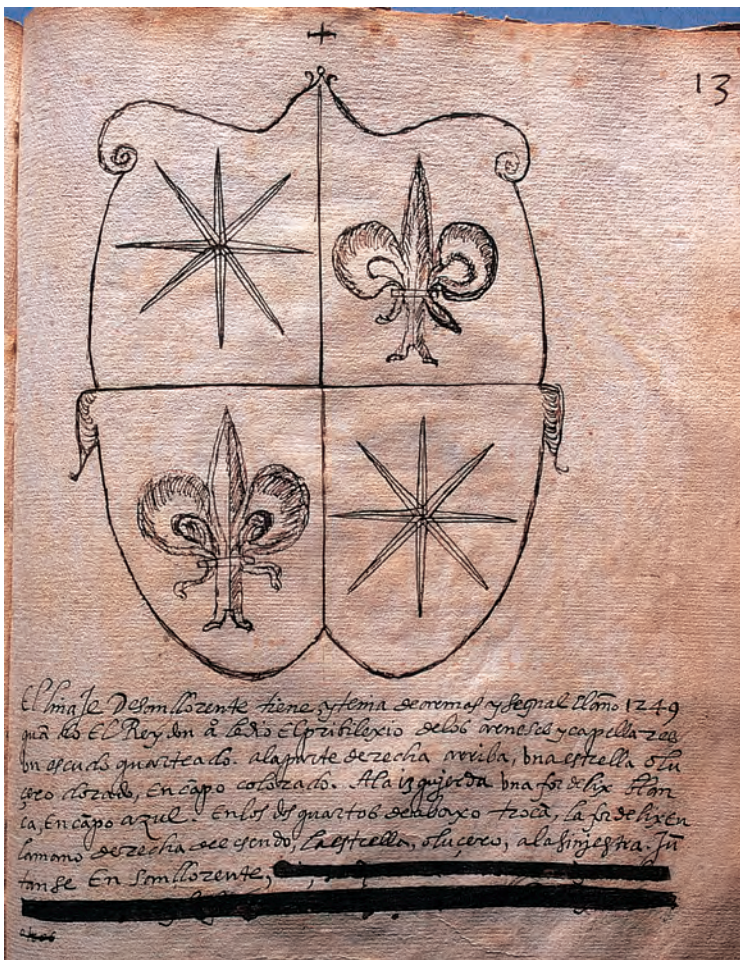 13
El linaje De Somllorente tiene y tenia de armas y segnal El año 1249
quãdo El Rey don aº le dio El pribilexio de los arneses y capellares
un escudo quarteado. a la parte derecha arriba, Una estrella o lu
çero dorado, En cãpo colorado. A la izquierda Una flor de lix blan
ca, En cãpo azul. En los ds quartos de abaxo trocã, la flor de lix en
la mano derecha del escudo, la estrella, o luçero, a la sinjestra. Jũ
tanse En Somllorente,